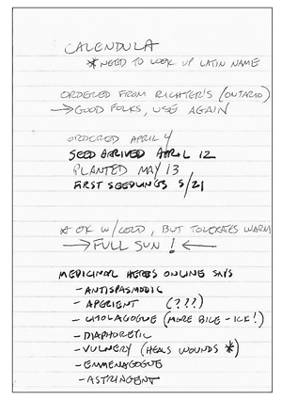 CALENDULA
* NEED TO LOOK UP LATIN NAME
ORDERED FROM RICHTER'S (ONTARIO)
→ GOOD FOLKS, USE AGAIN
ORDERED APRIL 4
SEED ARRIVED APRIL 12
PLANTED MAY 13
FIRST SEEDLINGS 5/21
* OK W/COLD, BUT TOLERATES WARM
→ FULL SUN! ←
MEDICINAL HERBS ONLINE SAYS
- ANTISPASMODIC
- APERIENT (???)
- CHOLAGOGUE (MORE BILE - ICK!)
- DIAPHORETIC
- VULNERY (HEALS WOUNDS *)
- EMMENAGOGUE
- ASTRINGENT